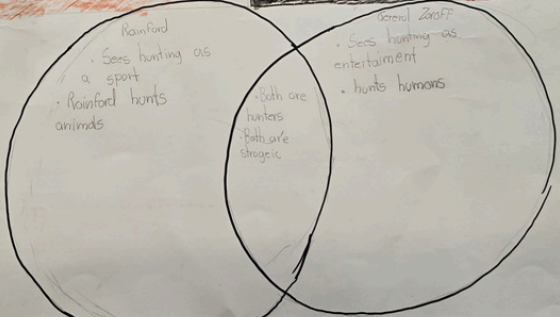 Rainford
· Sees hunting as
a sport
· Rainford hunts
animals
· Both are
hunters
· Both are
strageic
General Zaroff
· Sees hunting as
entertaiment
· hunts humans